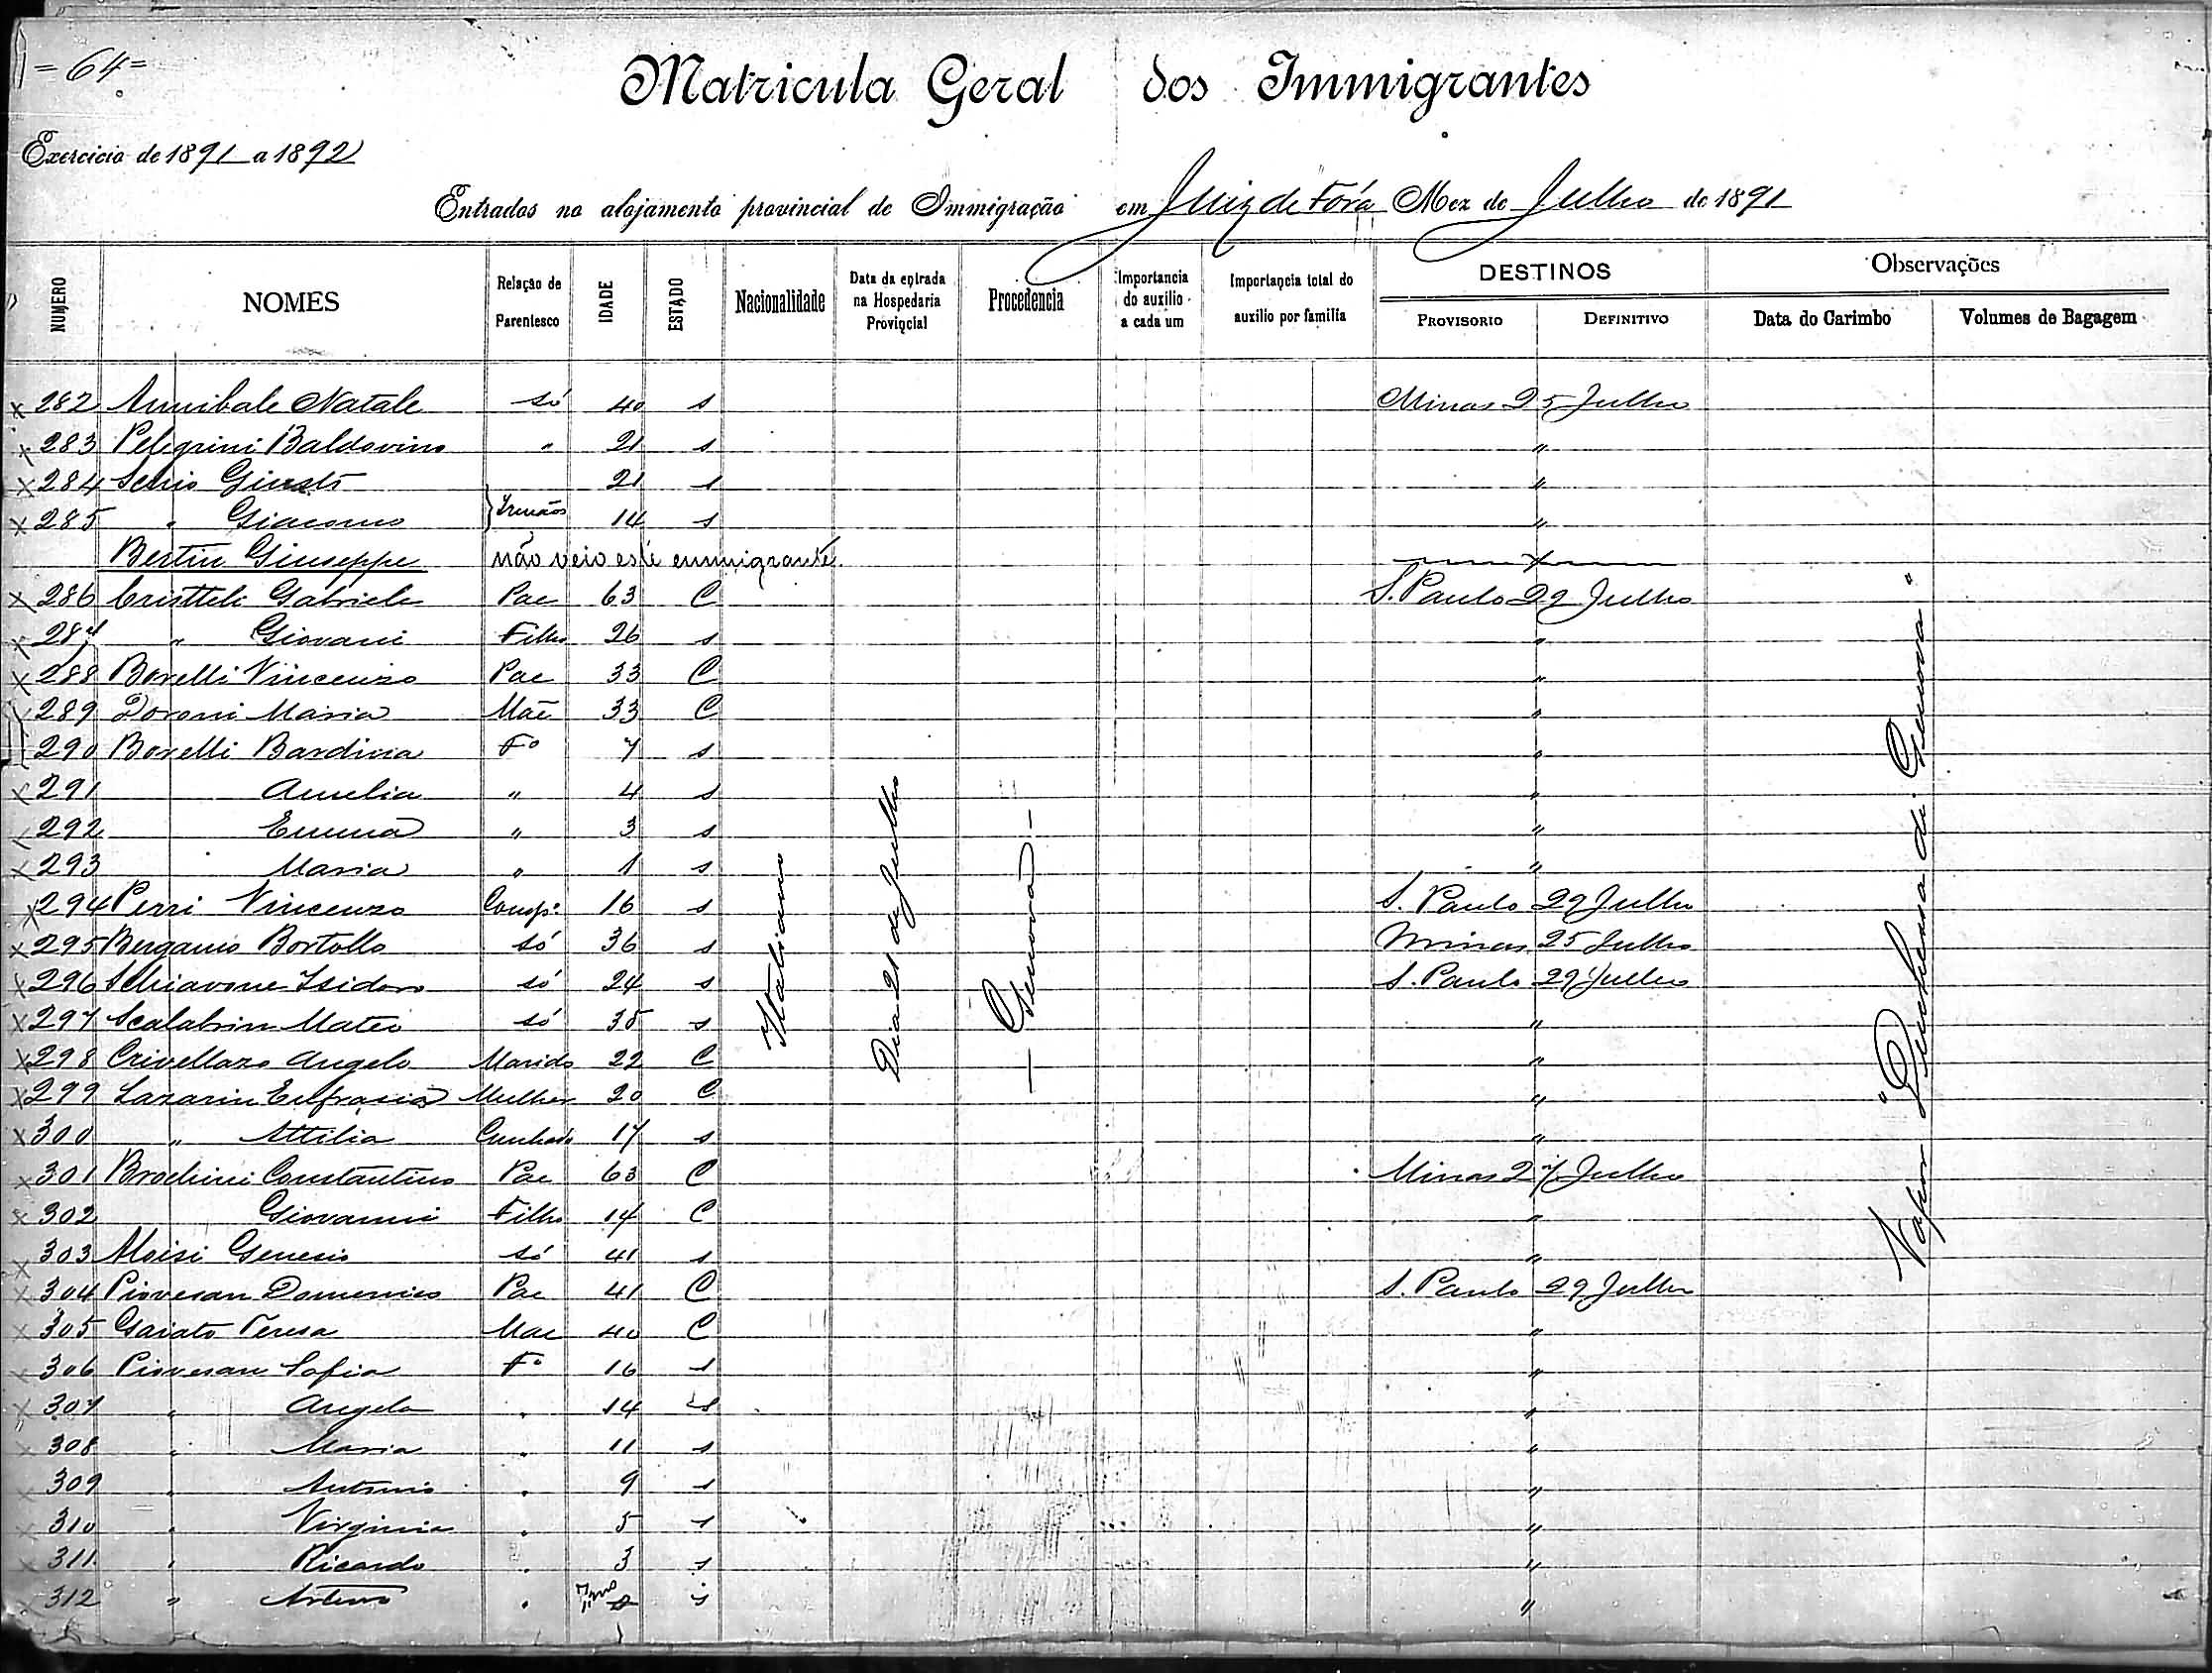 = 64 =
Matricula Geral dos Immigrantes
Exercicio de 1891 a 1892
Entrados no alojamento provincial de Immigração em Juiz de Fóra Mez de Julho de 1891
NUMERO NOMES Relação de Parentesco IDADE ESTADO Nacionalidade Data da entrada na Hospedaria Provincial Procedencia Importancia do auxilio a cada um Importancia total do auxilio por familia DESTINOS PROVISORIO DEFINITIVO Observações Data do Carimbo Volumes de Bagagem
x 282 Annibale Natale só 40 s Minas 25 Julho
x 283 Pelegrini Baldovino " 21 s "
x 284 Giusto 21 s "
x 285 " Giacomo } Irmãos 14 s "
Bertin Giuseppe não veio este emmigrante.
x 286 Cristteli Gabriele Pae 63 C S. Paulo 29 Julho
x 287 " Giovani Filho 26 s "
x 288 Borelli Vincenzo Pae 33 C "
x 289 Doroni Maria Mãe 33 C "
290 Borelli Bardina Fº 7 s "
x 291 Amelia " 4 s "
x 292 Emma " 3 s "
x 293 Maria " 1 s "
x 294 Perri Vincenzo Comp: 16 s S. Paulo 29 Julho
x 295 Bergamo Bortollo só 36 s Minas 25 Julho
x 296 Schiavone Isidoro só 24 s S. Paulo 29 Julho
x 297 Scalabrin Mateo só 35 s "
x 298 Crivellaro Angelo Marido 22 C "
x 299 Lazarin Eufrasia Mulher 20 C "
x 300 " Attilia Cunhada 17 s "
x 301 Brochini Constantino Pae 63 C Minas 27 Julho
x 302 Giovanni Filho 14 C "
x 303 Moisi Genesio só 41 s "
x 304 Piovesan Domenico Pae 41 C S. Paulo 29 Julho
x 305 Gaiato Teresa Mae 40 C "
x 306 Piovesan Sofia Fº 16 s "
x 307 " Angela " 14 s "
x 308 " Maria " 11 s "
x 309 " Antonio " 9 s "
x 310 " Virginia " 5 s "
x 311 " Ricardo " 3 s "
312 " Arturo " 7 ms s "
Italiano
Dia 21 de Julho
— Genova —
Vapor "Duchessa di Genova"